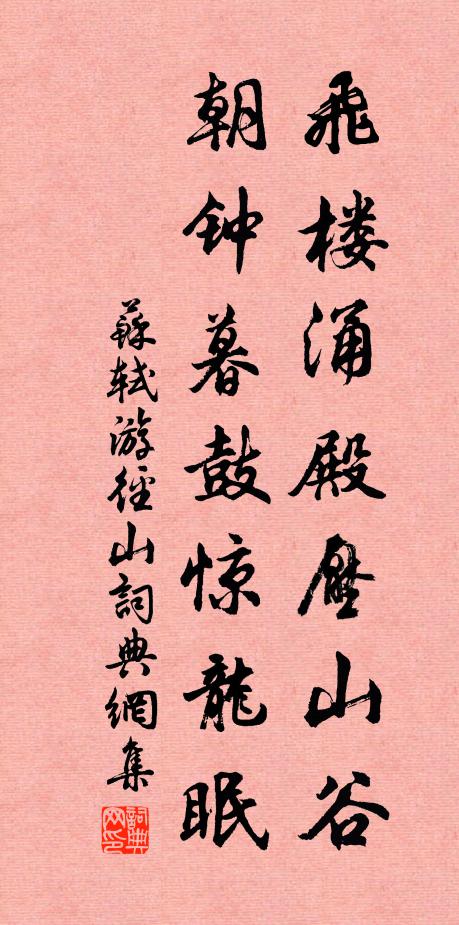 飛楼涌殿壓山谷
朝钟暮鼓惊龍眠
蘇軾游徑山詞典網集
詞典网印